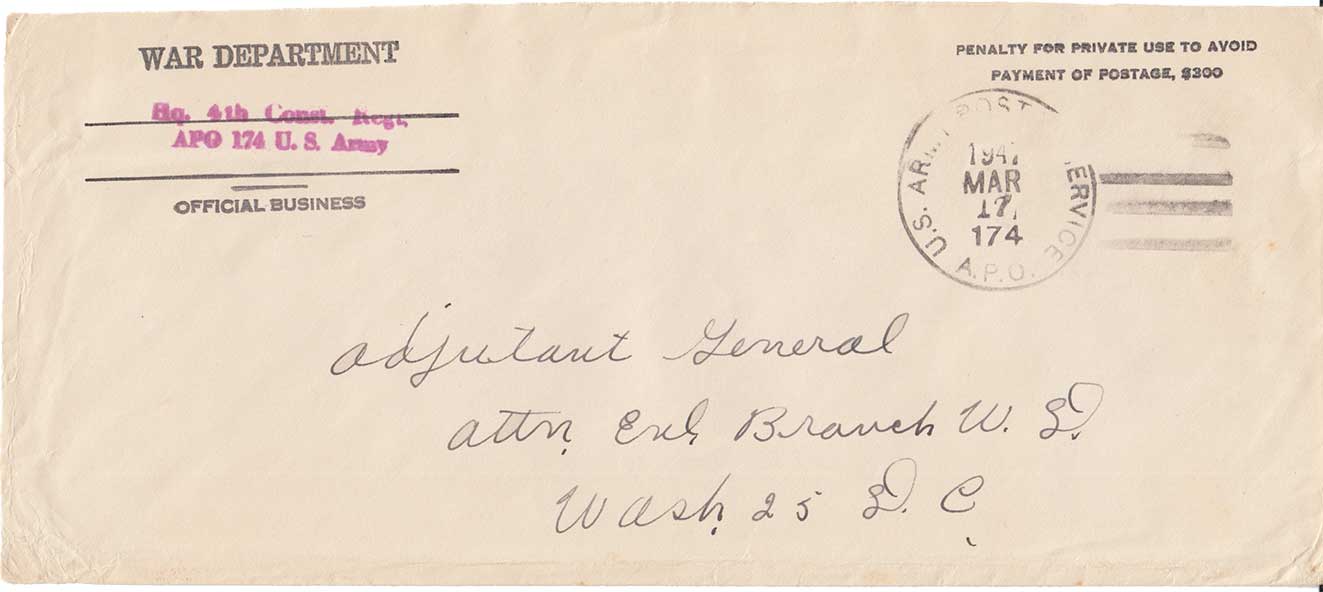 WAR DEPARTMENT
Hq. 4th Const. Regt.
APO 174 U. S. Army
OFFICIAL BUSINESS
PENALTY FOR PRIVATE USE TO AVOID
PAYMENT OF POSTAGE, $300
U.S. ARMY POSTAL SERVICE
1947
MAR
17
174
A.P.O.
Adjutant General
Attn, Enl, Branch W. D.
Wash, 25 D. C.